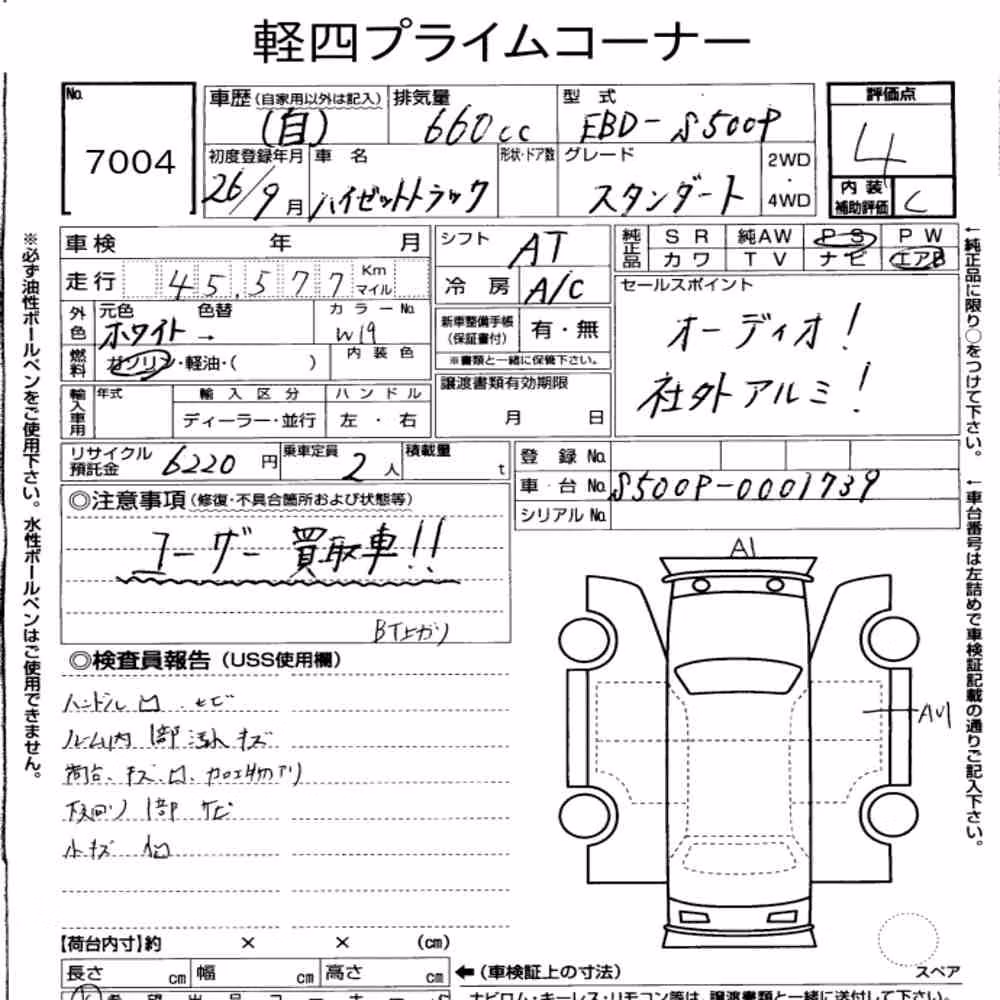 軽四プライムコーナー
No. 7004
車歴 (自家用以外は記入) (自)
排気量 660cc
型式 EBD-S500P
評価点 4
初度登録年月 26/9月
車名 ハイゼットトラック
形状・ドア数
グレード スタンダート
2WD・4WD
内装補助評価 C
車検 年 月
走行 45,577 Km マイル
シフト AT
冷房 A/C
純正品 SR 純AW PS PW
カワ TV ナビ エアB
外色 元色 ホワイト → 色替
カラーNo. W19
燃料 ガソリン・軽油・( )
内装色
新車整備手帳(保証書付) 有・無
※書類と一緒に保管下さい。
セールスポイント
オーディオ!
社外アルミ!
輸入車用 年式
輸入区分 ディーラー・並行
ハンドル 左・右
譲渡書類有効期限 月 日
リサイクル預託金 6220円
乗車定員 2人
積載量 t
登録No.
車台No. S500P-0001739
シリアルNo.
◎注意事項(修復・不具合箇所および状態等)
ユーザー買取車!!
BT上がり
◎検査員報告(USS使用欄)
ハンドル 凹
ルーム内 1部 汚れ キズ
荷台、キズ、凹、加工物アリ
下回り 1部 サビ
小キズ 凹
A1
AU1
【荷台内寸】約 × × (cm)
長さ cm 幅 cm 高さ cm
←(車検証上の寸法)
スペア
ナビロム・キーレス・リモコン等は、譲渡書類と一緒に送付して下さい。
※必ず油性ボールペンをご使用下さい。水性ボールペンはご使用できません。
←純正品に限り○をつけて下さい。
←車台番号は左詰めで車検証記載の通りご記入下さい。